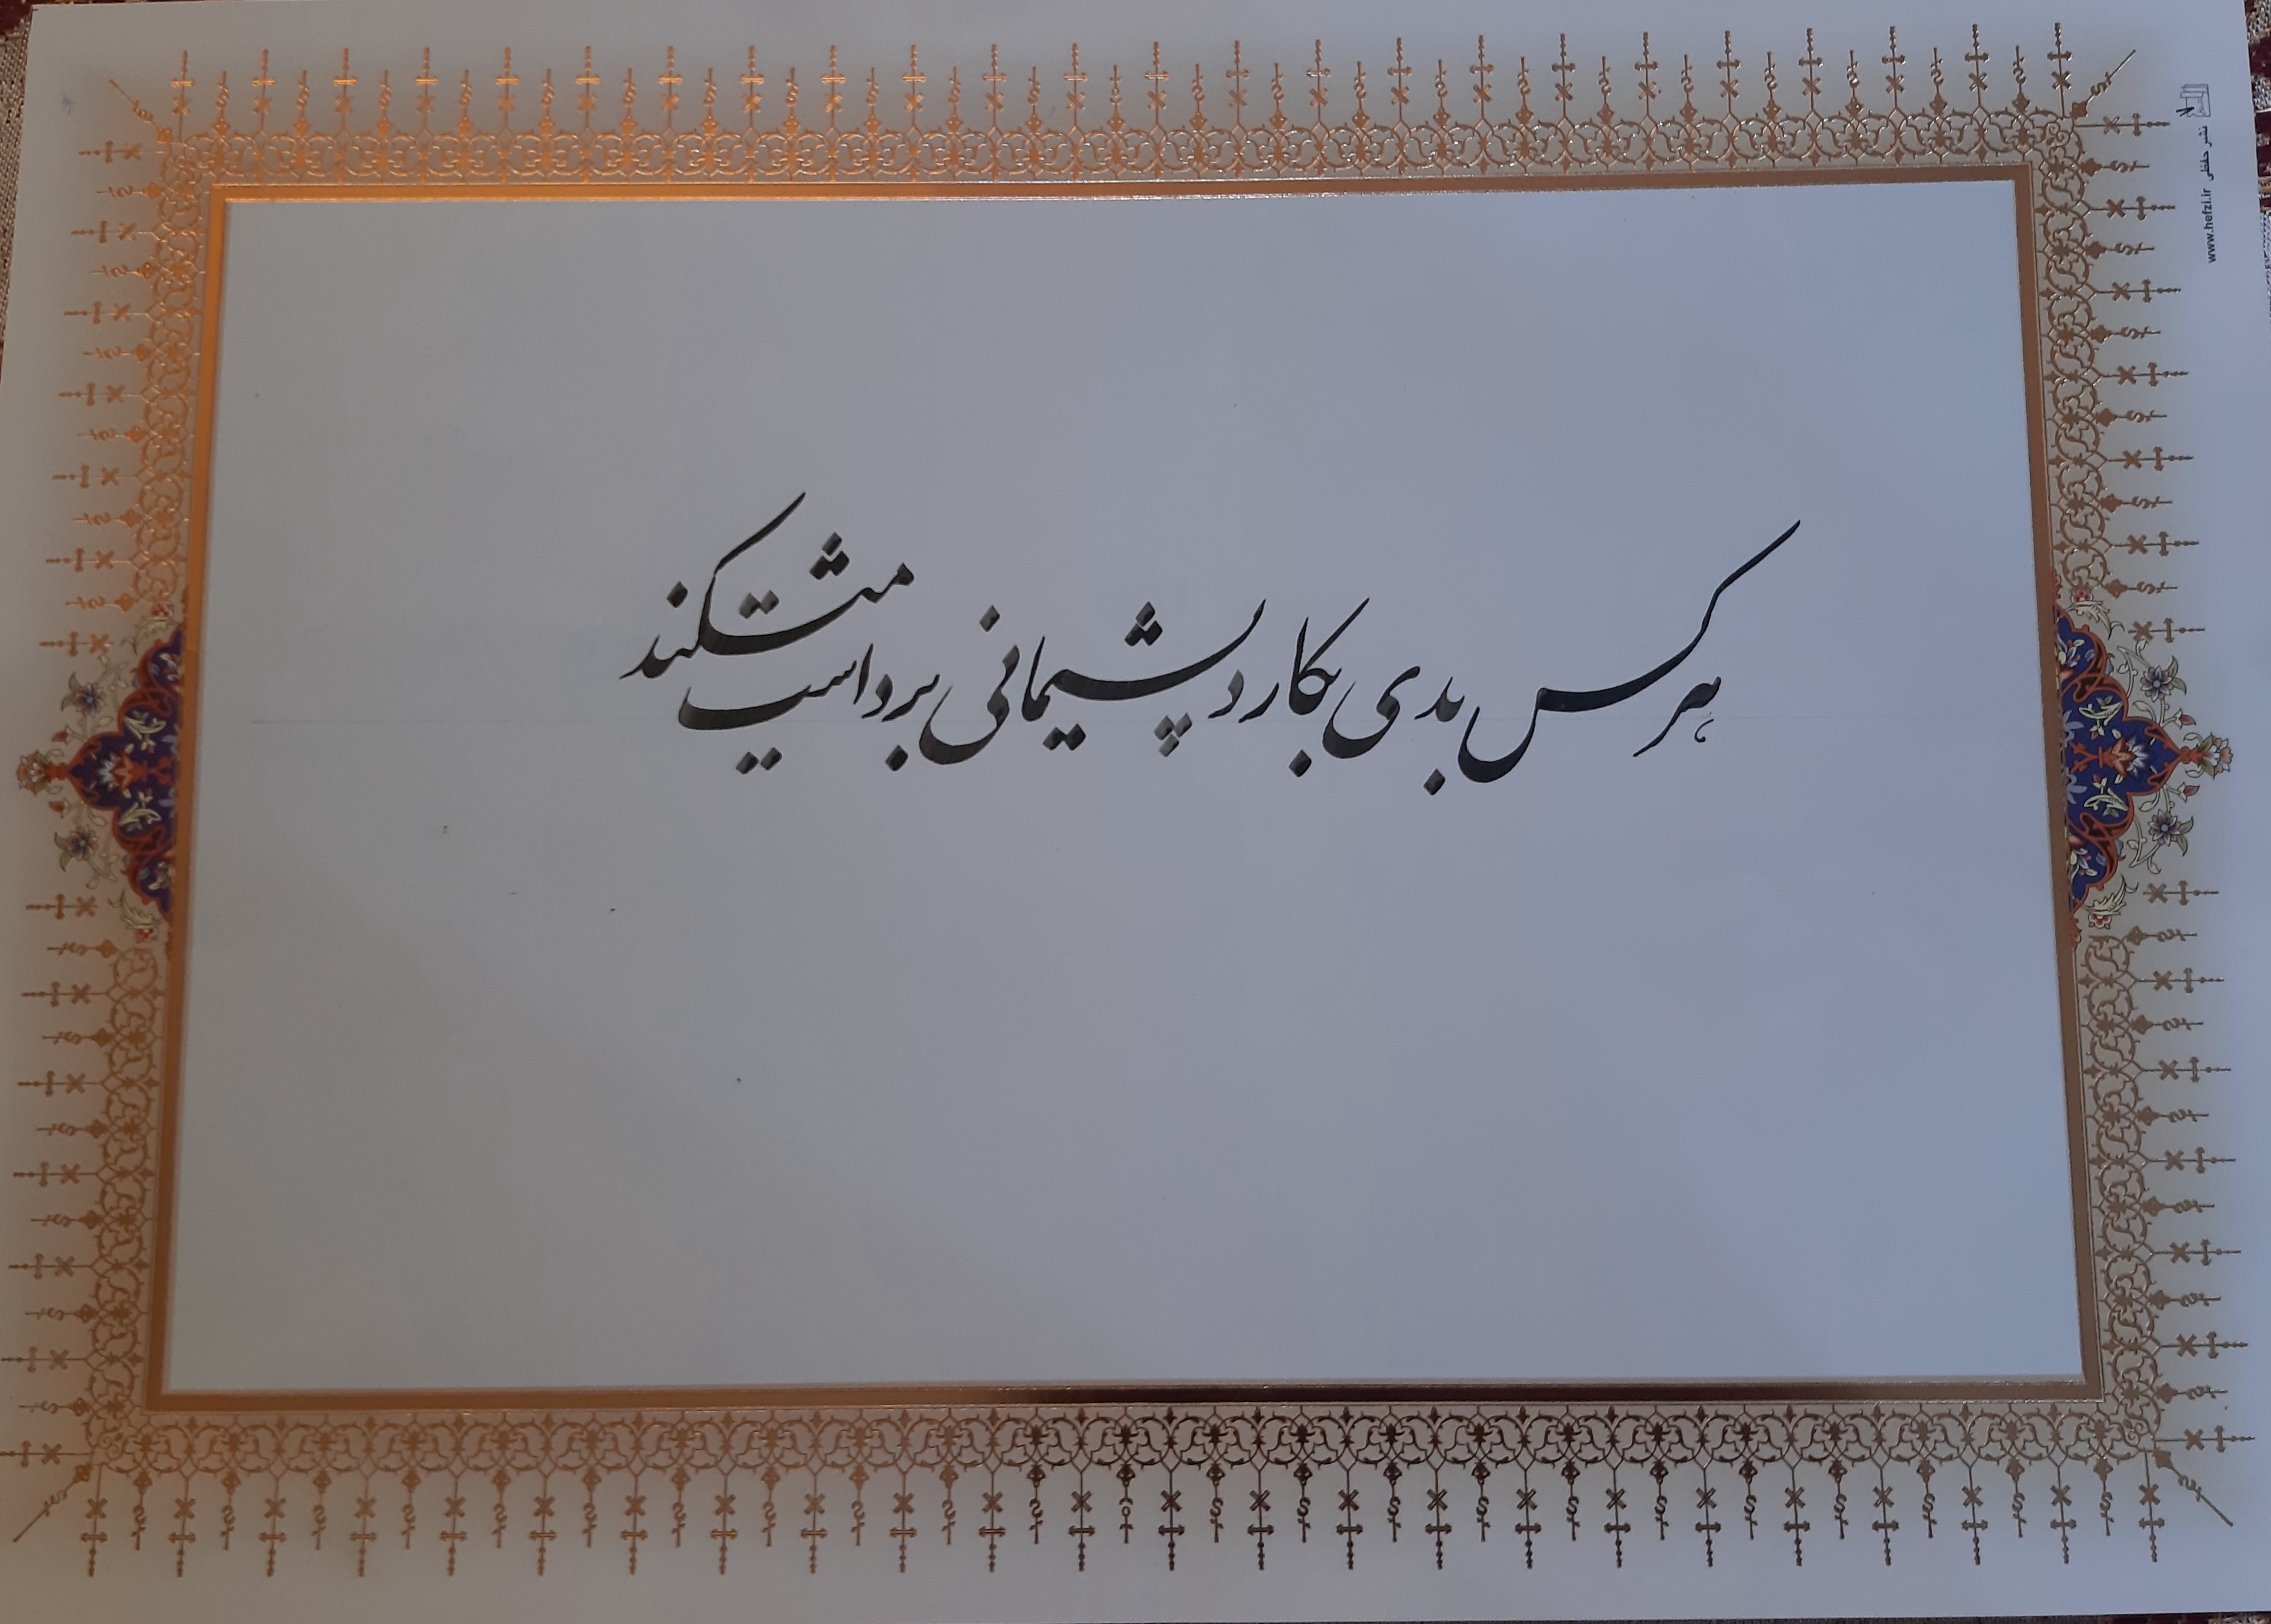 هر کس بدی بکارد پشیمانی برداشت میکند
نشر حفظی www.hefzi.ir